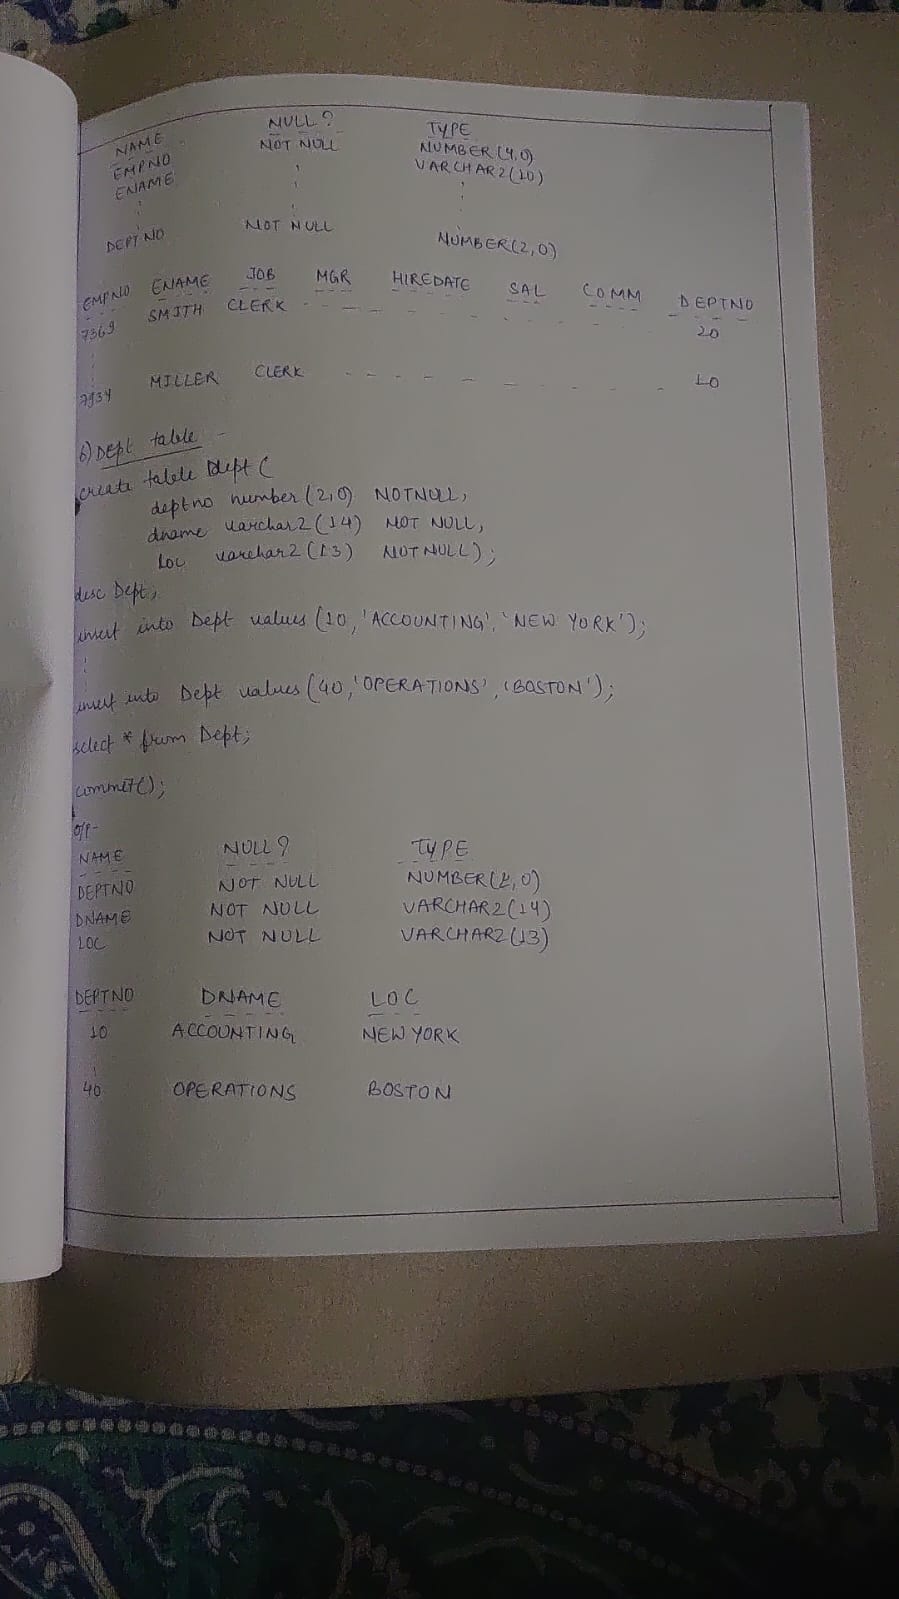 NAME NULL? TYPE
EMPNO NOT NULL NUMBER(4,0)
ENAME VARCHAR2(10)
DEPTNO NOT NULL NUMBER(2,0)
EMPNO ENAME JOB MGR HIREDATE SAL COMM DEPTNO
7369 SMITH CLERK 20
7934 MILLER CLERK 10
6) Dept table -
create table Dept (
deptno number (2,0) NOTNULL,
dname varchar2 (14) NOT NULL,
Loc varchar2 (13) NOT NULL);
desc Dept;
insert into Dept values (10, 'ACCOUNTING', 'NEW YORK');
insert into Dept values (40, 'OPERATIONS', 'BOSTON');
select * from Dept;
commit();
o/p-
NAME NULL? TYPE
DEPTNO NOT NULL NUMBER(2,0)
DNAME NOT NULL VARCHAR2(14)
LOC NOT NULL VARCHAR2(13)
DEPTNO DNAME LOC
10 ACCOUNTING NEW YORK
40 OPERATIONS BOSTON